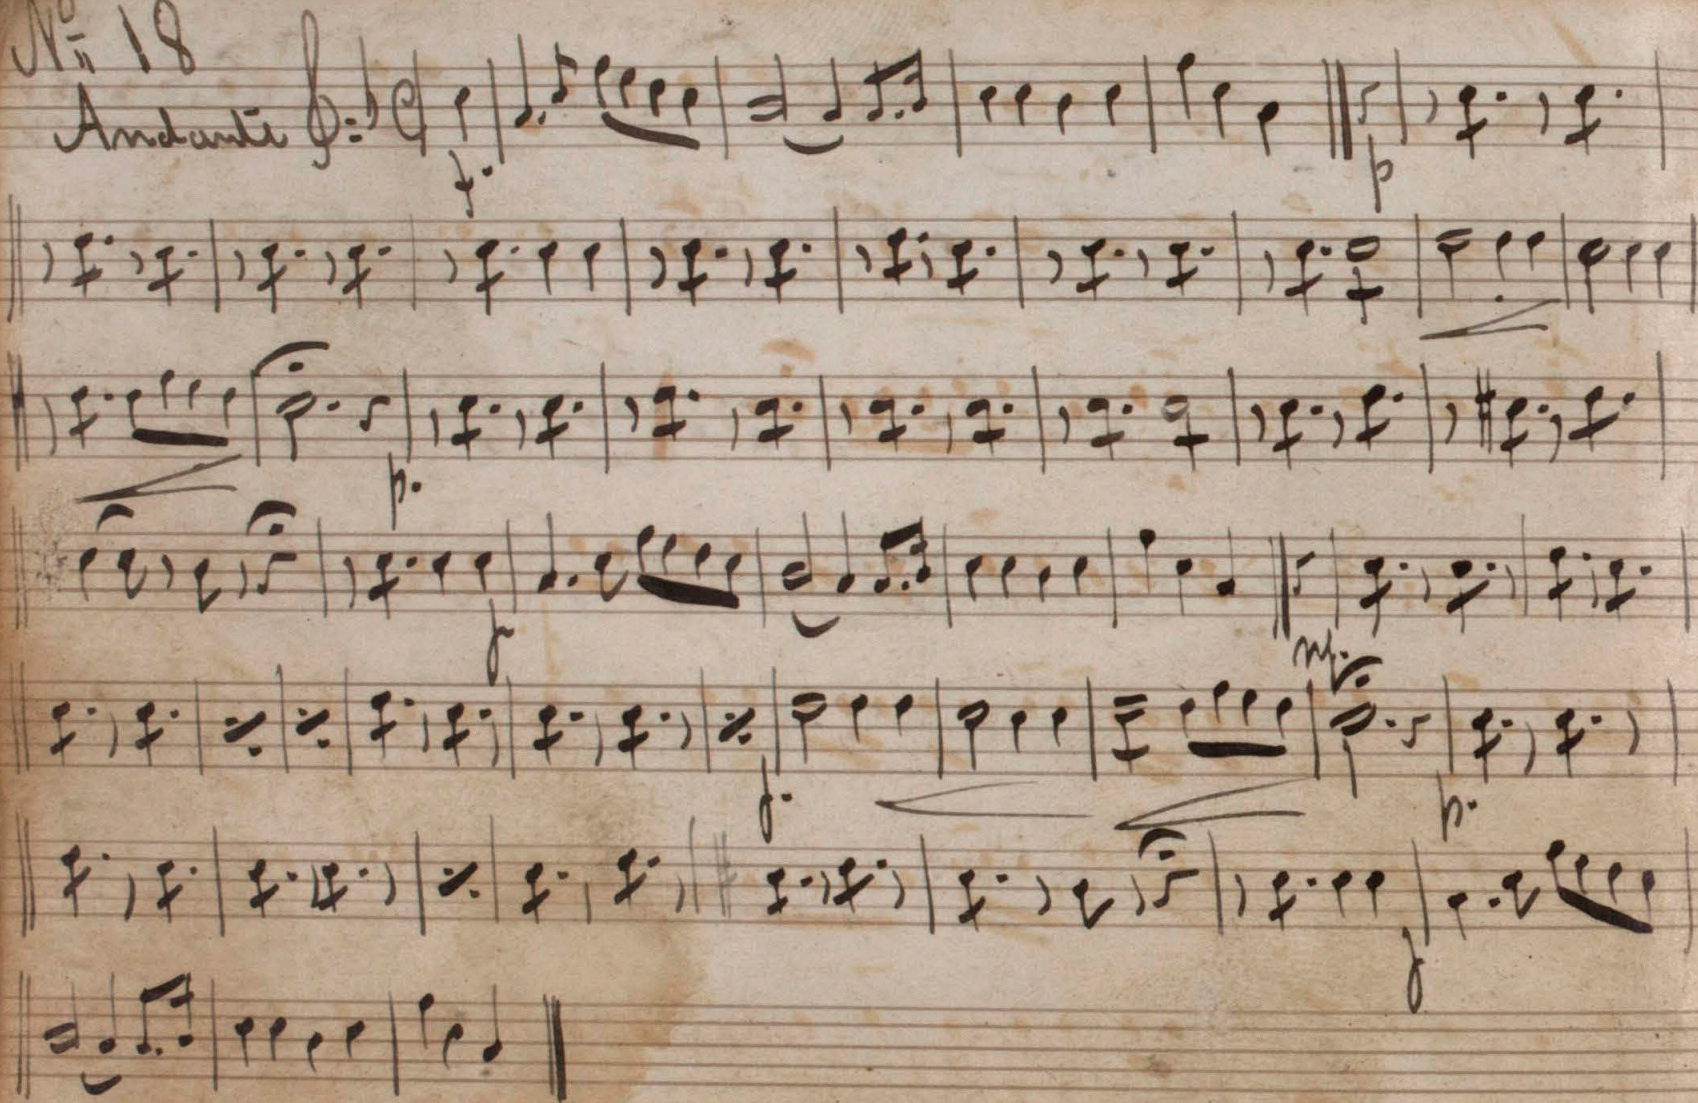 No 18
Andante
f.
p
p.
f
mf.
f.
p.
f